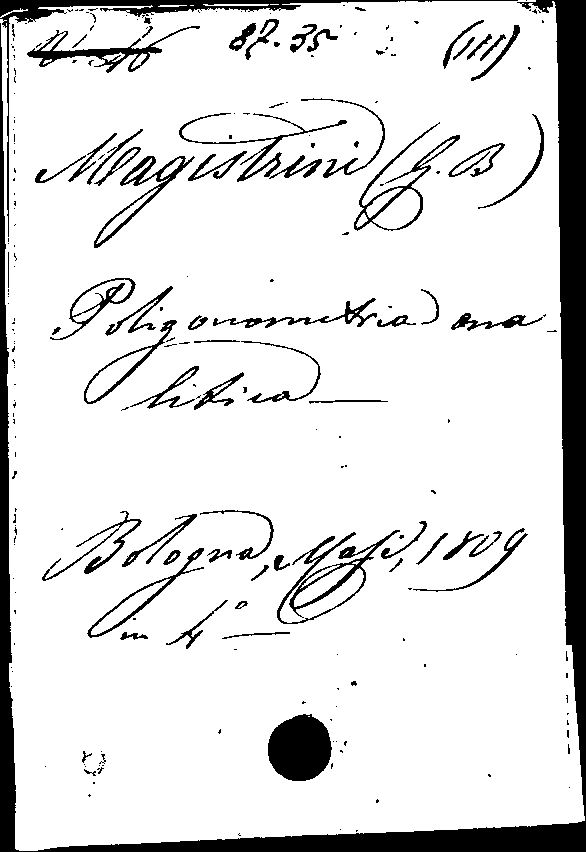 87.35 (III)
Magistrini (G. B)
Poligonometria ana
litica —
Bologna, Masi, 1809
in 4° —